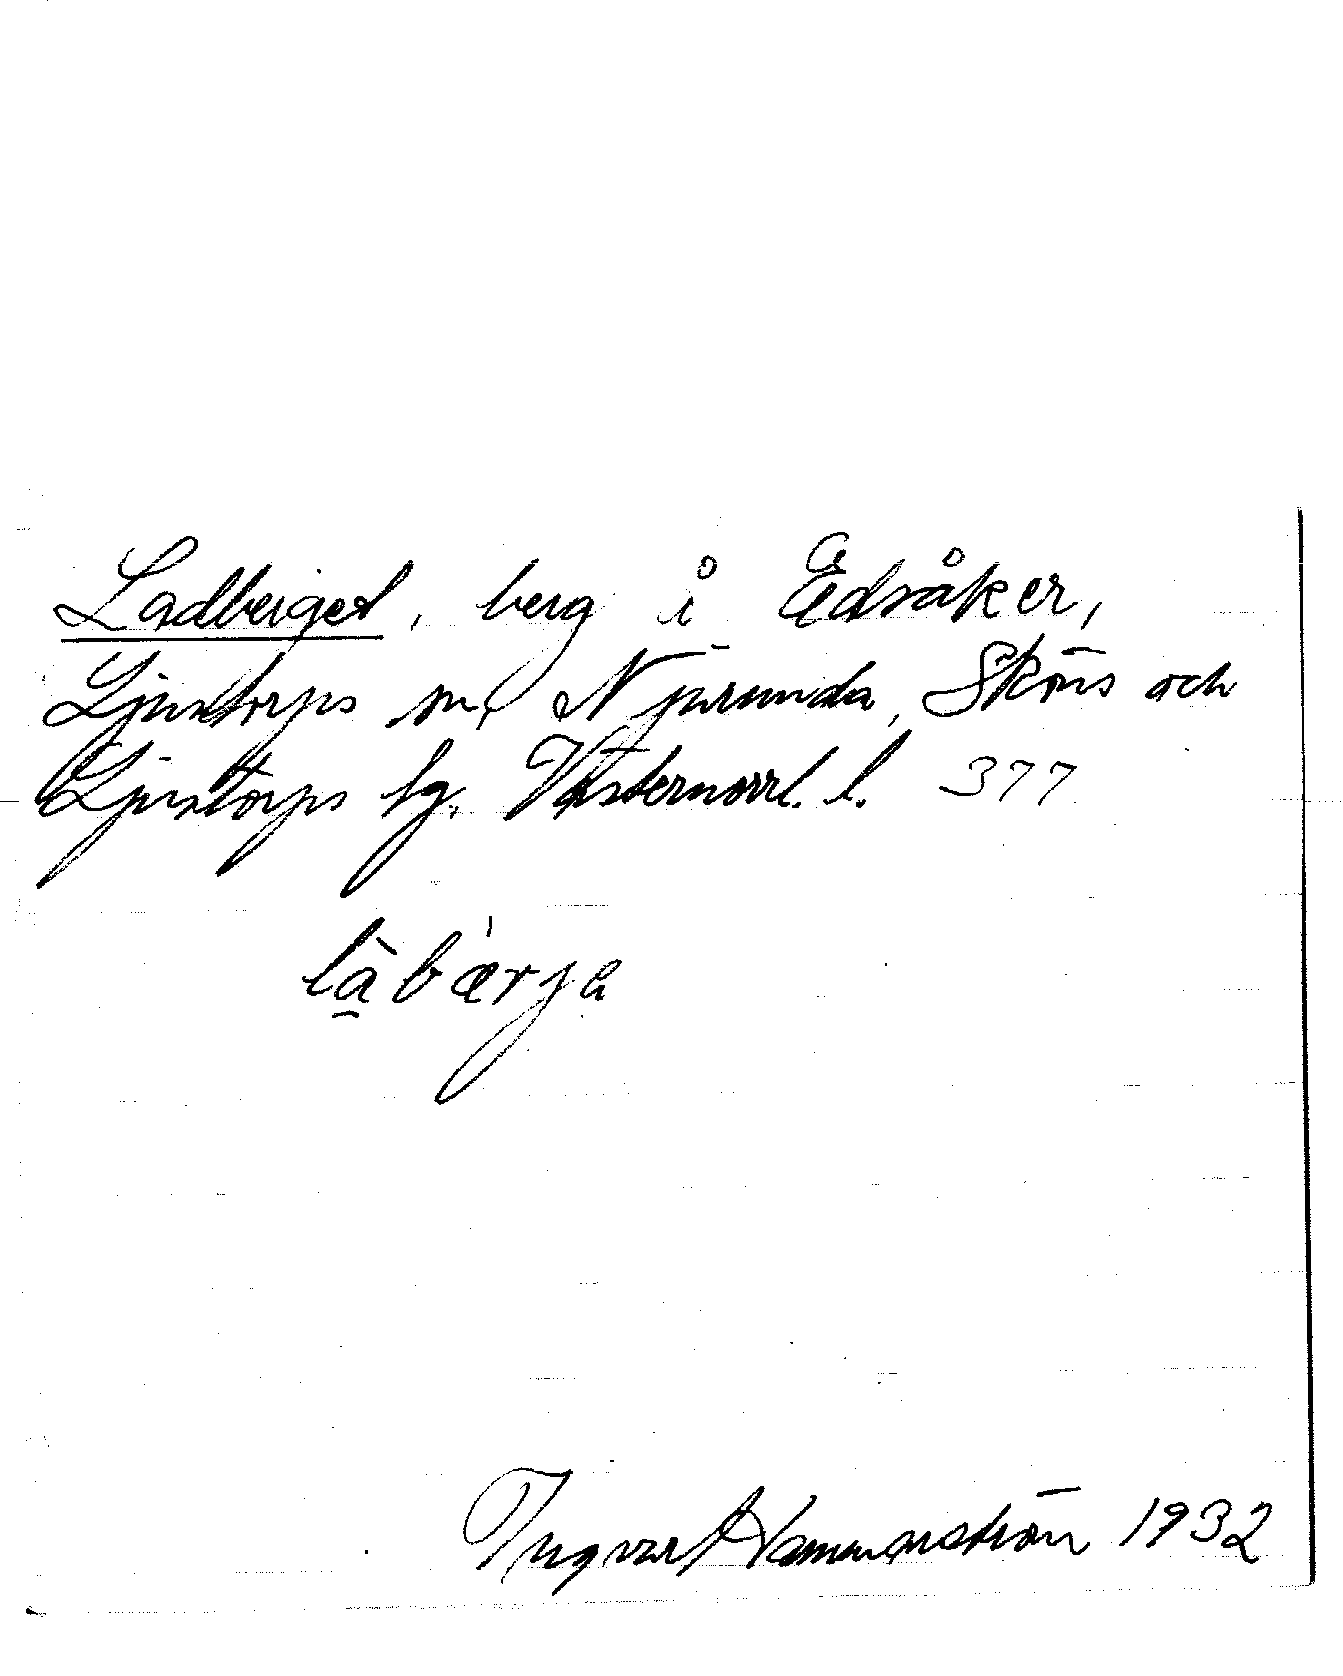 Ladberget, berg i Edsåker,
Ljustorps sn, Njurunda, Sköns och
Ljustorps tg. Västernorrl. l. 377
làbærja
Ingvar Hammarström 1932